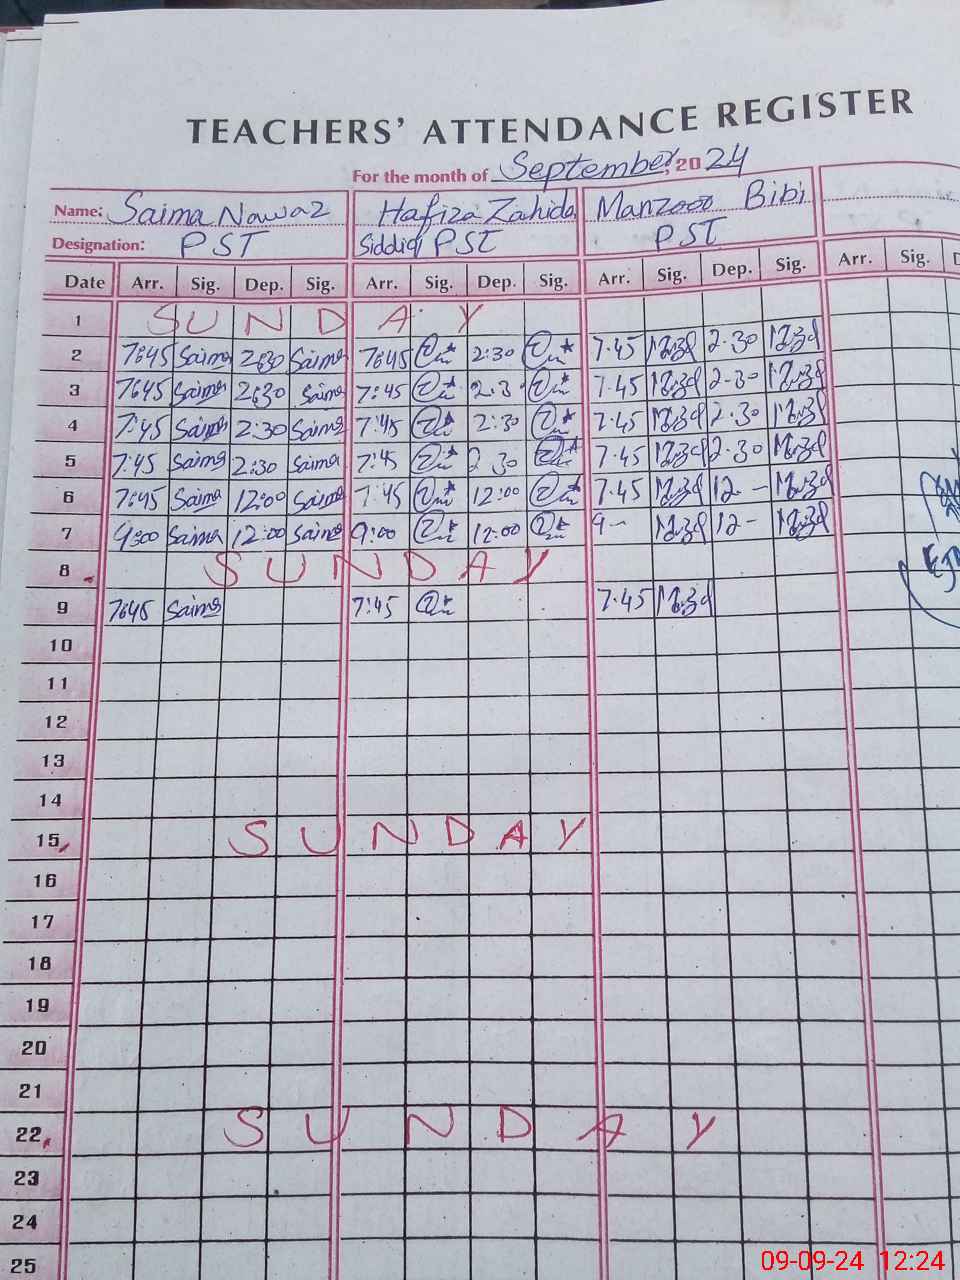 TEACHERS' ATTENDANCE REGISTER
For the month of September, 2024
Name: Saima Nawaz Hafiza Zahida Manzoor Bibi
Designation: PST Siddiqi PST PST
Date Arr. Sig. Dep. Sig. Arr. Sig. Dep. Sig. Arr. Sig. Dep. Sig. Arr. Sig.
1 SUNDAY
2 7:45 Saima 2:30 Saima 7:45 2:30 7.45 2.30
3 7:45 Saima 2:30 Saima 7:45 2:3 7.45 2-30
4 7:45 Saima 2:30 Saima 7:45 2:30 7.45 2.30
5 7:45 Saima 2:30 Saima 7:45 2 30 7.45 2-30
6 7:45 Saima 12:00 Saima 7:45 12:00 7.45 12 -
7 9:00 Saima 12:00 Saima 9:00 12:00 9 - 12 -
8 SUNDAY
9 7:45 Saima 7:45 7.45
10
11
12
13
14
15 SUNDAY
16
17
18
19
20
21
22 SUNDAY
23
24
25
09-09-24 12:24